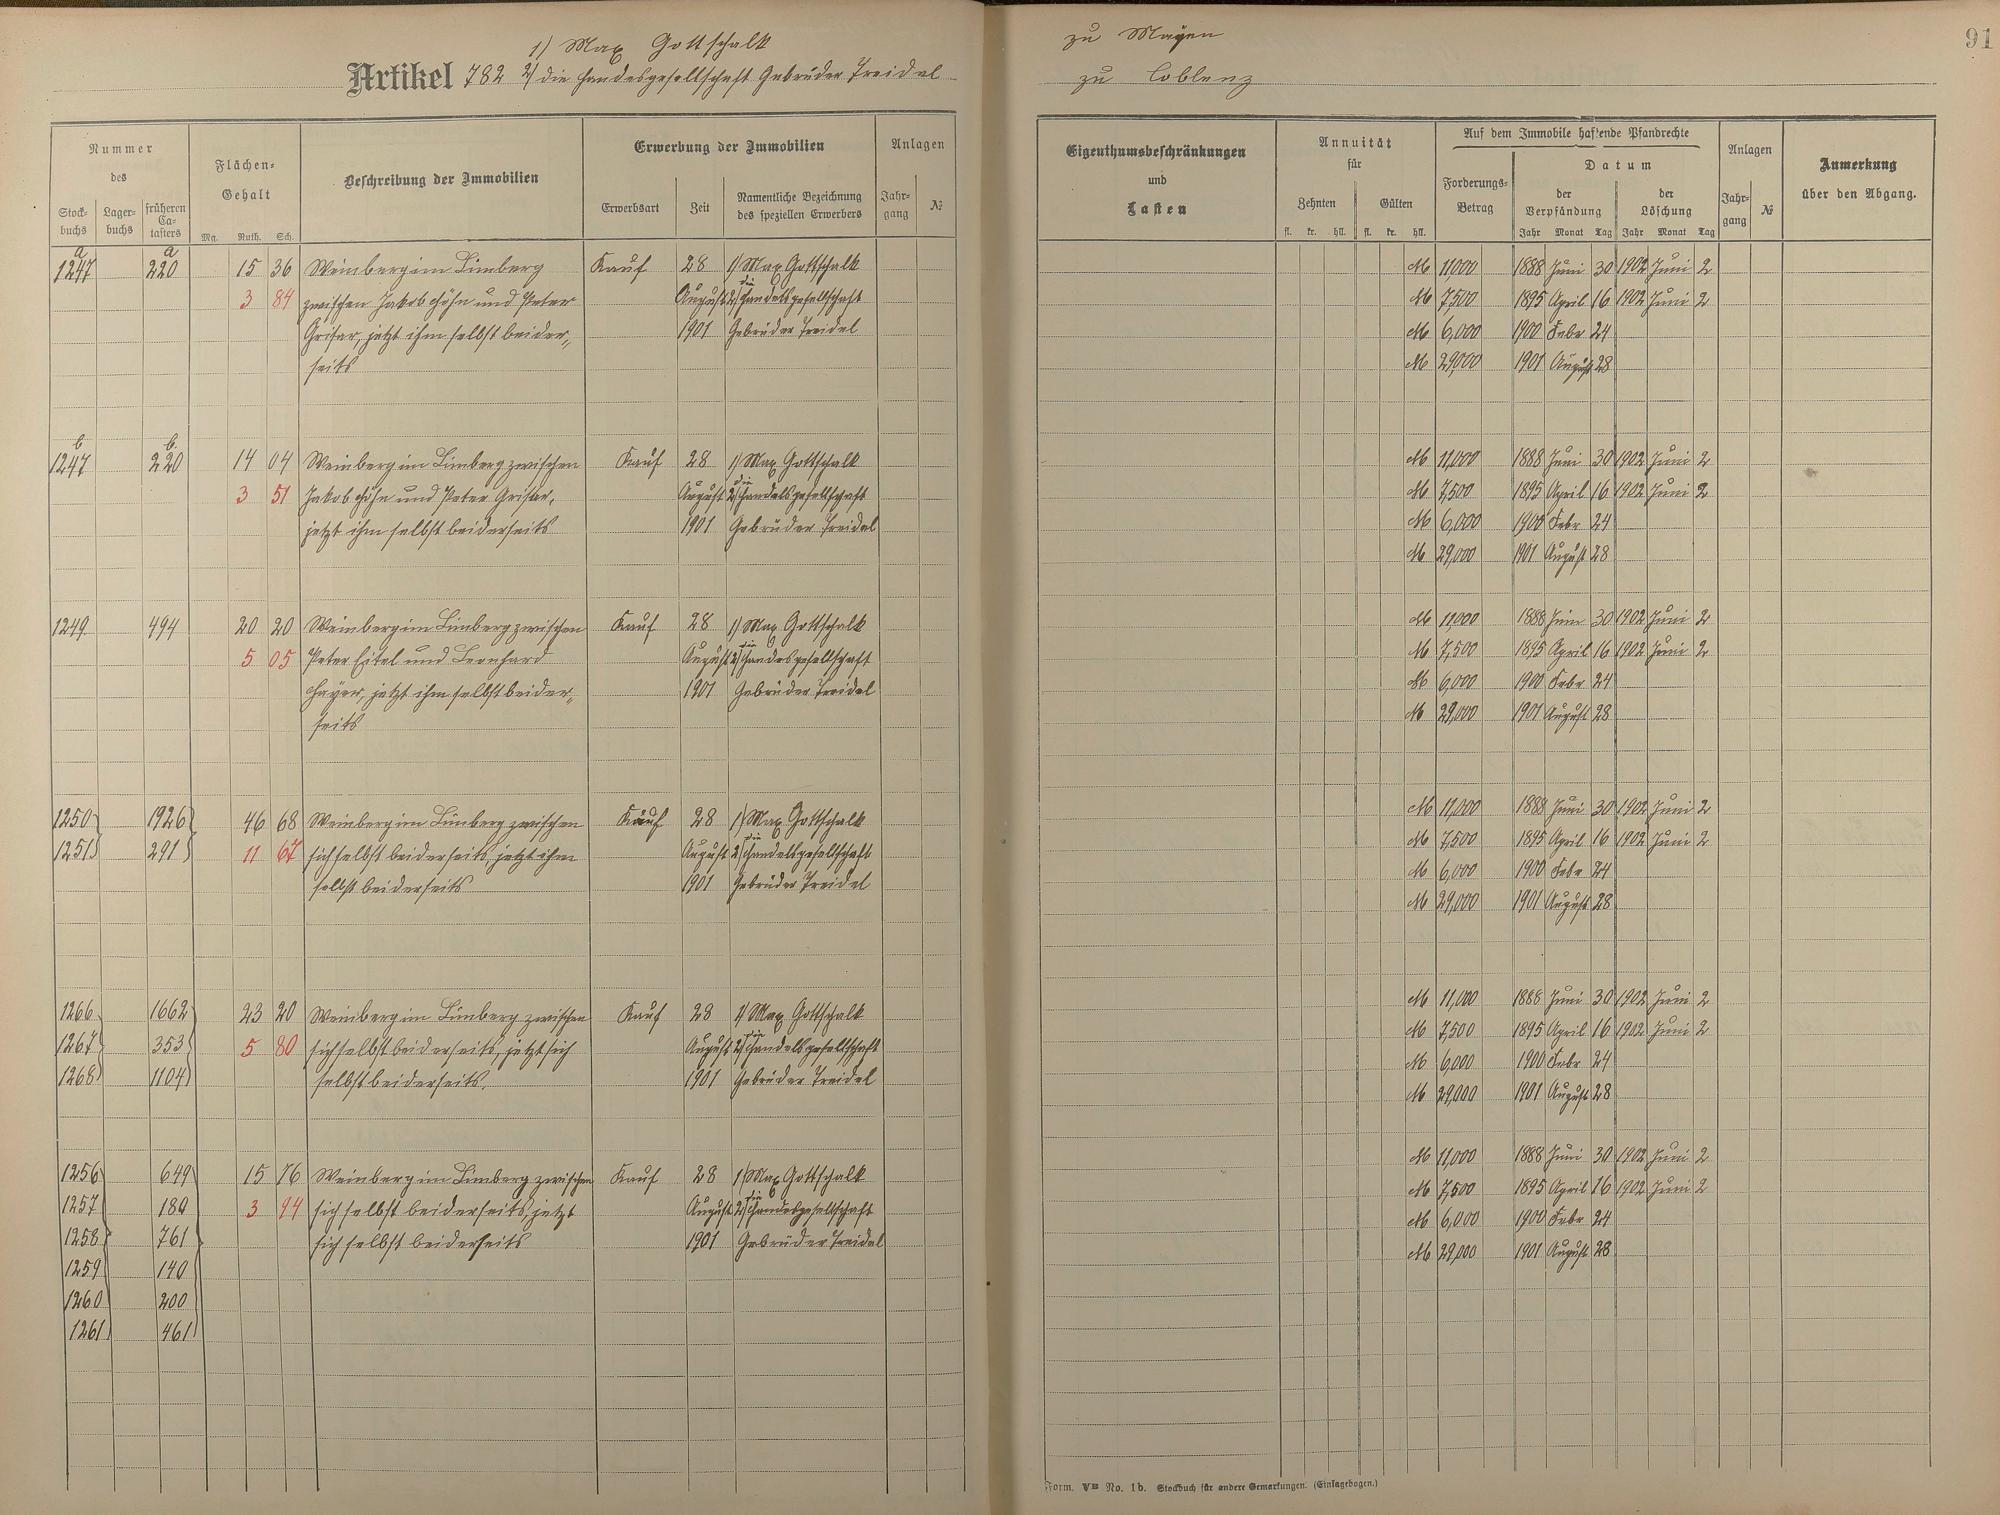 1) Max Gottschalk zu Mayen
Artikel 782 2) die Handelsgesellschaft Gebrüder Treidel zu Coblenz
91
Nummer
des
Stock-
buchs
Lager-
buchs
früheren
Ca-
tasters
Flächen-
Gehalt
Mg. Ruth. Sch.
Beschreibung der Immobilien
Erwerbung der Immobilien
Erwerbsart
Zeit
Namentliche Bezeichnung
des speziellen Erwerbers
Anlagen
Jahr-
gang
№
Eigenthumsbeschränkungen
und
Lasten
Annuität
für
Zehnten Gülten
fl. kr. hll. fl. kr. hll.
Auf dem Immobile haftende Pfandrechte
Forderungs-
Betrag
Datum
der
Verpfändung
der
Löschung
Jahr Monat Tag Jahr Monat Tag
Anlagen
Jahr-
gang
№
Anmerkung
über den Abgang.
a a
1247 220 15 36 Weinberg im Limberg Kauf 28 1) Max Gottschalk M 11000 1888 Juni 30 1902 Juni 2
die
3 84 zwischen Jakob Höhn und Peter August 2) Handelsgesellschaft M 7,500 1895 April 16 1902 Juni 2
Griser, jetzt ihm selbst beider- 1901 Gebrüder Treidel M 6,000 1900 Febr 24
seits M 29,000 1901 August 28
b b.
1247 220 14 04 Weinberg im Limberg zwischen Kauf 28 1) Max Gottschalk M 11,000 1888 Juni 30 1902 Juni 2
die
3 51 Jakob Höhn und Peter Griser, August 2) Handelsgesellschaft M 7,500 1895 April 16 1902 Juni 2
jetzt ihm selbst beiderseits 1901 Gebrüder Treidel M 6,000 1900 Febr 24
M 29,000 1901 August 28
1249. 494 20 20 Weinberg im Limberg zwischen Kauf 28 1) Max Gottschalk M 11,000 1888 Juni 30 1902 Juni 2
die
5 05 Peter Eitel und Leonhard August 2) Handelsgesellschaft M 7,500 1895 April 16 1902 Juni 2
Hayer, jetzt ihm selbst beider- 1901 Gebrüder Treidel M 6,000 1900 Febr 24
seits M 29,000 1901 August 28
1250 1926 46 68 Weinberg im Limberg zwischen Kauf 28 1) Max Gottschalk M 11,000 1888 Juni 30 1902 Juni 2
die
1251 291 11 67 sich selbst beiderseits, jetzt ihm August 2) Handelsgesellschaft M 7,500 1895 April 16 1902 Juni 2
selbst beiderseits 1901 Gebrüder Treidel M 6,000 1900 Febr 24
M 29,000 1901 August 28
1266 1662 23 20 Weinberg im Limberg zwischen Kauf 28 1) Max Gottschalk M 11,000 1888 Juni 30 1902 Juni 2
die
1267 353 5 80 sich selbst beiderseits, jetzt sich August 2) Handelsgesellschaft M 7,500 1895 April 16 1902 Juni 2
1268 1104 selbst beiderseits. 1901 Gebrüder Treidel M 6,000 1900 Febr 24
M 29,000 1901 August 28
1256 649 15 76 Weinberg im Limberg zwischen Kauf 28 1) Max Gottschalk M 11,000 1888 Juni 30 1902 Juni 2
die
1257 180 3 94 sich selbst beiderseits, jetzt August 2) Handelsgesellschaft M 7,500 1895 April 16 1902 Juni 2
1258 761 sich selbst beiderseits 1901 Gebrüder Treidel M 6,000 1900 Febr 24
M 29,000 1901 August 28
1259 140
1260 200
1261 461
Form. VB No. 1b. Stockbuch für andere Gemarkungen. (Einlagebogen.)